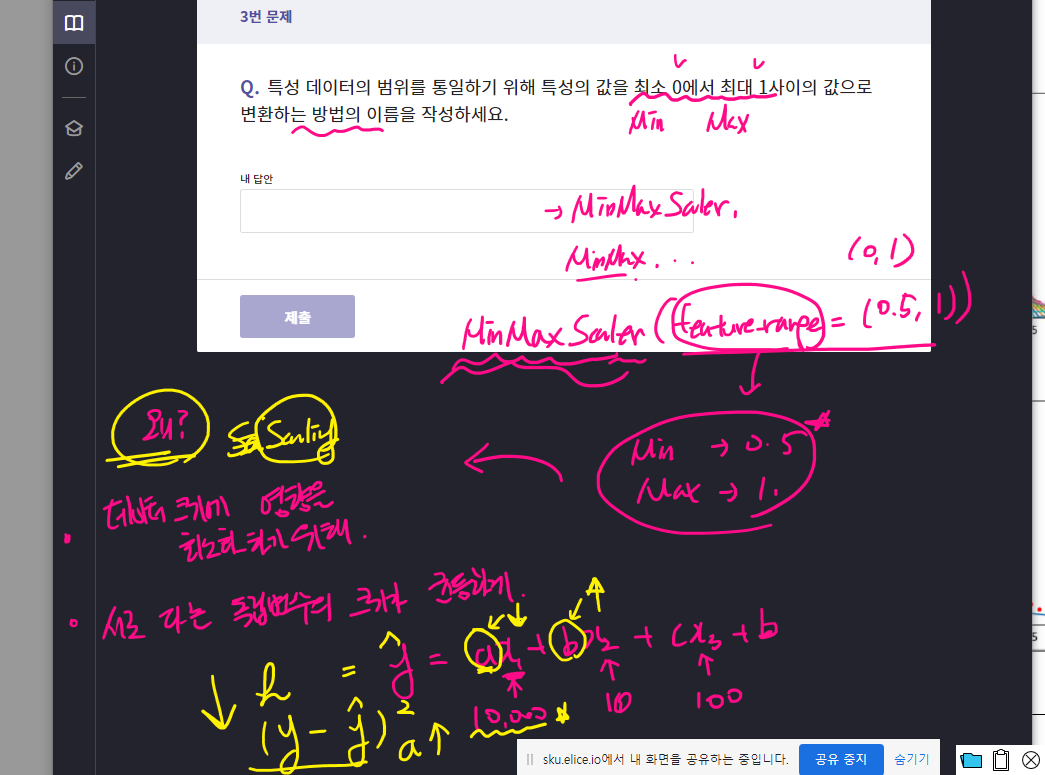 3번 문제
Q. 특성 데이터의 범위를 통일하기 위해 특성의 값을 최소 0에서 최대 1사이의 값으로
변환하는 방법의 이름을 작성하세요.
Min Max
내 답안
→ MinMaxScaler.
MinMax. . .
(0, 1)
제출
MinMaxScaler (feature-range = (0.5, 1))
왜?
Scaling
Min → 0.5
Max → 1.
데이터 크기에 영향을
최소화 하기 위해.
서로 다는 독립변수의 크기가 균등하게.
= ŷ = ax₁ + bx₂ + cx₃ + b
10,000 10 100
(y - ŷ)² a↑
sku.elice.io에서 내 화면을 공유하는 중입니다.
공유 중지
숨기기
5
5